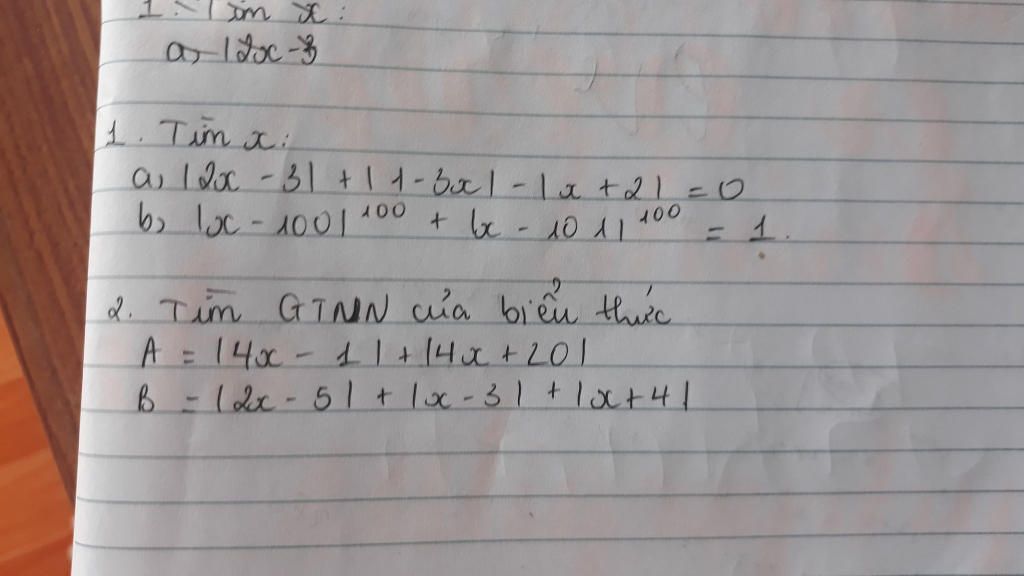 1. Tìm x:
a, |2x - 3
1. Tìm x:
a, |2x - 3| + |1 - 3x| - |x + 2| = 0
b, |x - 100|¹⁰⁰ + |x - 101|¹⁰⁰ = 1.
2. Tìm GTNN của biểu thức
A = |4x - 1| + |4x + 20|
B = |2x - 5| + |x - 3| + |x + 4|